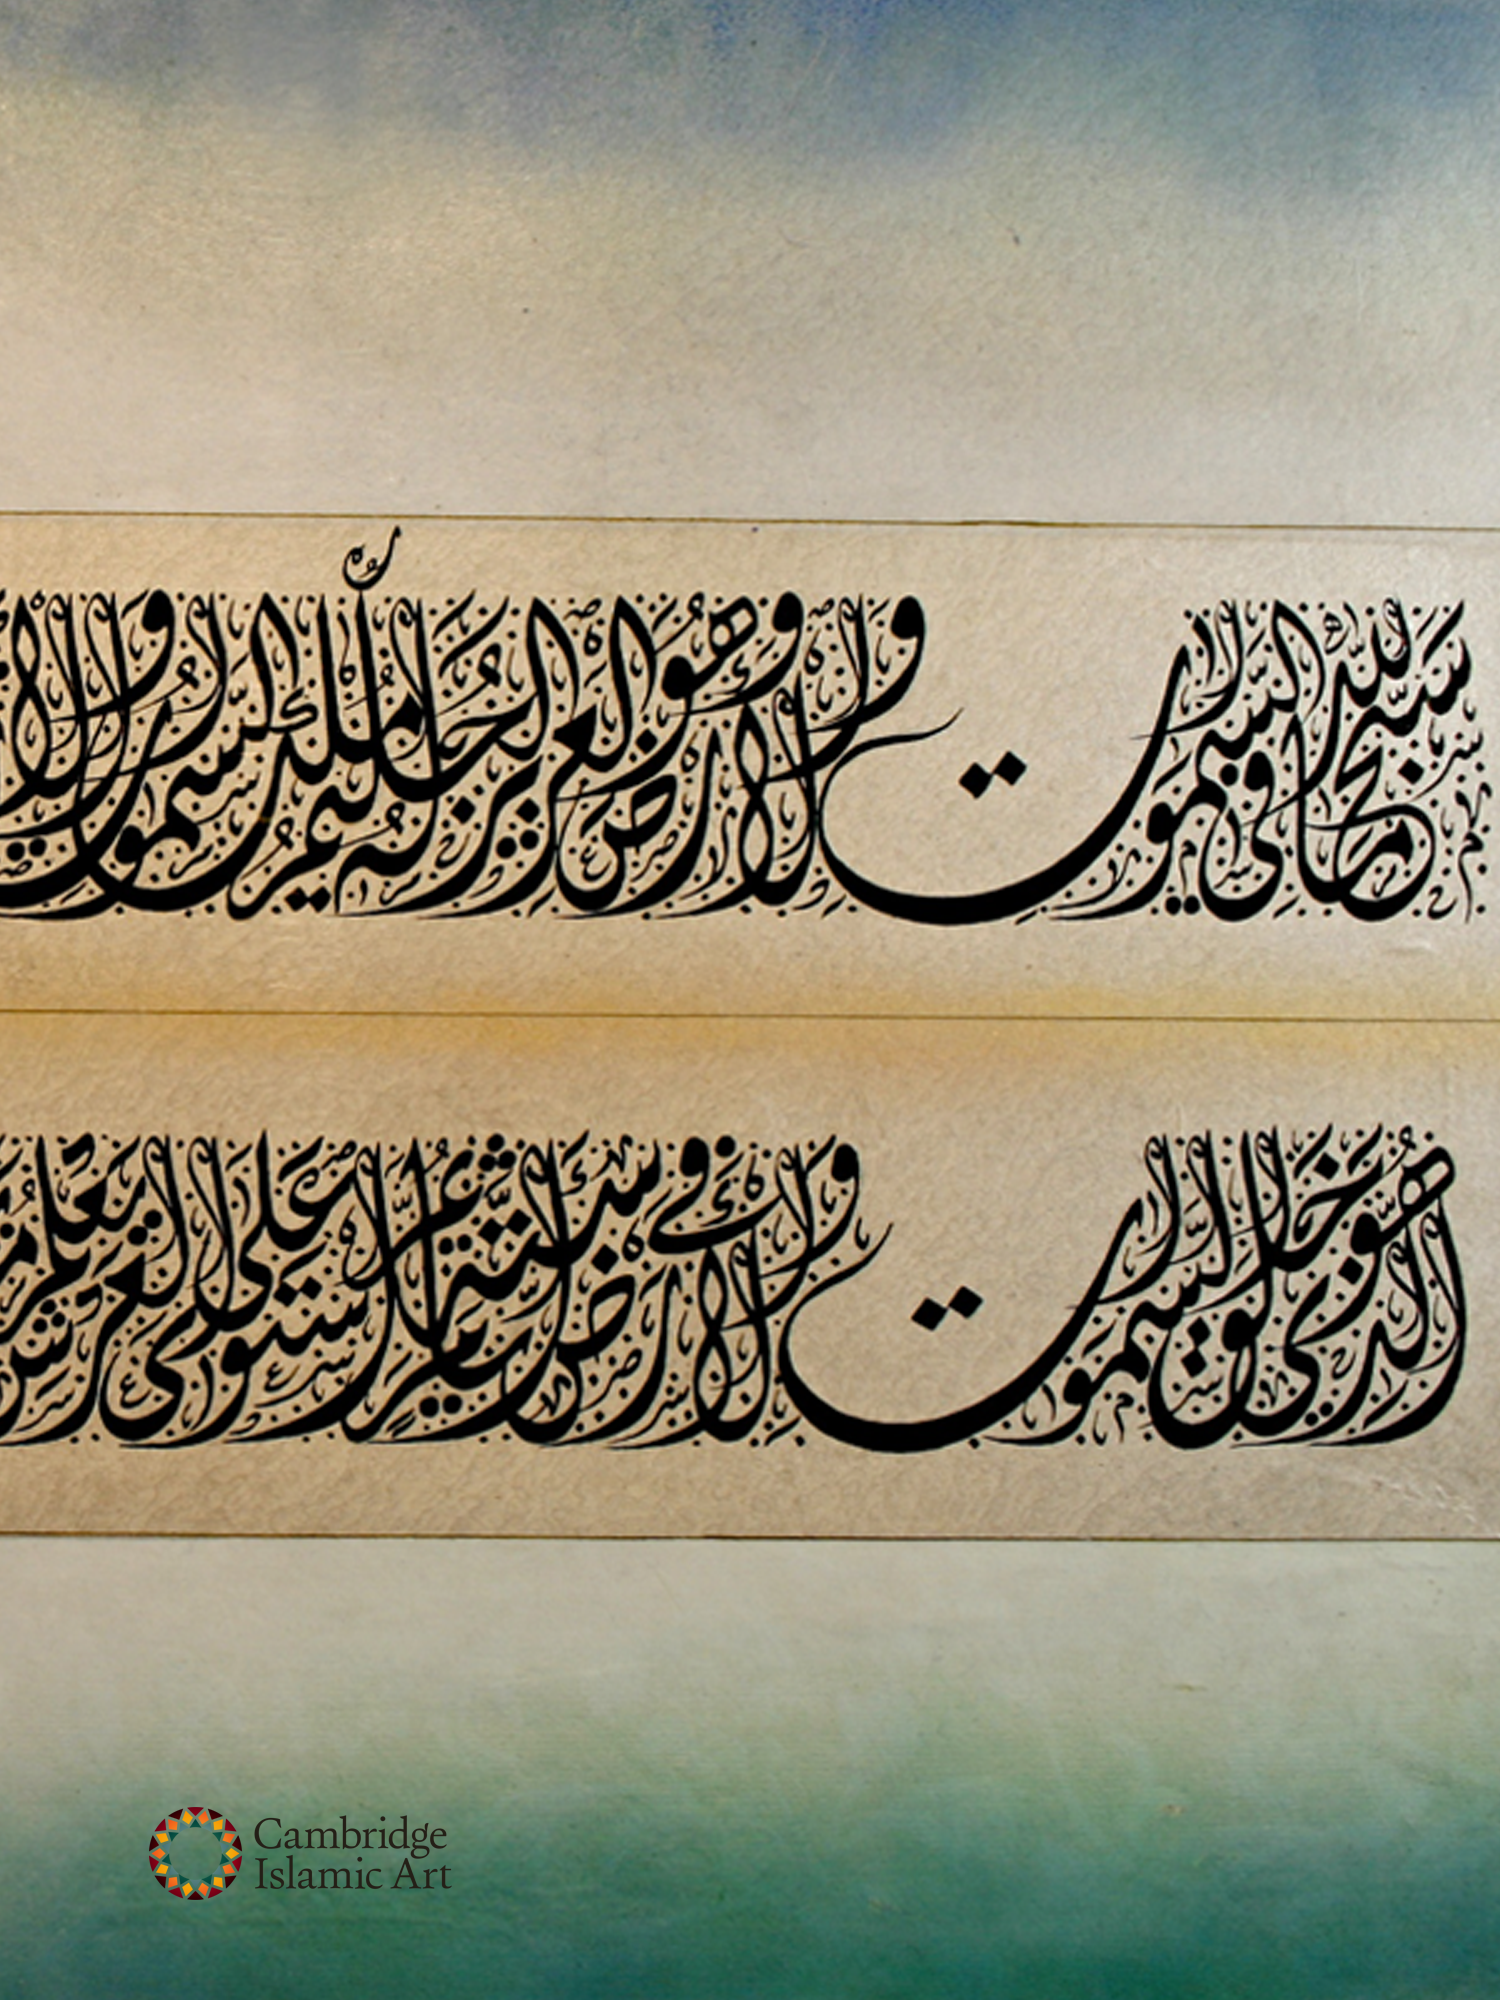 سبح لله ما في السموت والأرض وهو العزيز الحكيم له ملك السموت
هو الذي خلق السموت والأرض في ستة أيام ثم استوى على العرش يعلم
Cambridge
Islamic Art